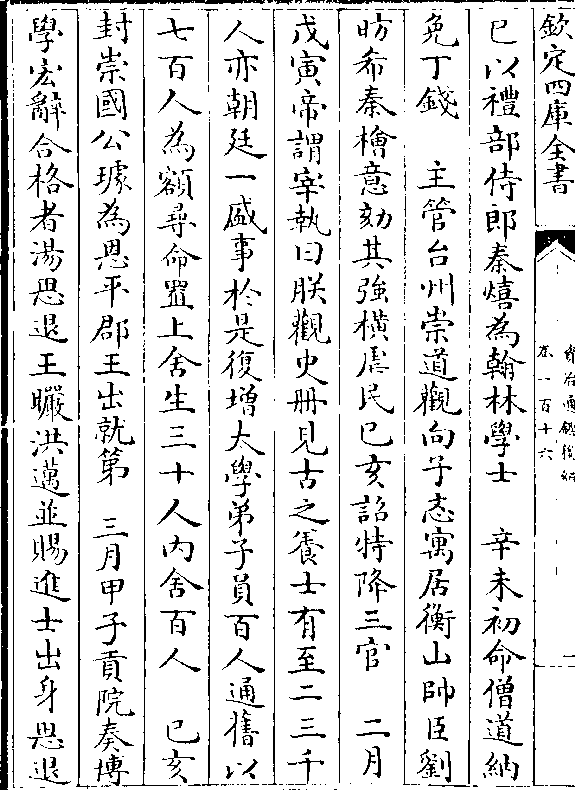 欽定四庫全書
資治通鑑後編
卷一百十六
一
巳以禮部侍郎秦熺為翰林學士　辛未初命僧道納
免丁錢　主管台州崇道觀向子忞寓居衡山帥臣劉
昉希秦檜意劾其強橫虐民已亥詔特降三官　二月
戊寅帝謂宰執曰朕觀史冊見古之養士有至二三千
人亦朝廷一盛事於是復增太學弟子員百人通舊以
七百人為額尋命置上舍生三十人內舍百人　已亥
封崇國公璩為恩平郡王出就第　三月甲子貢院奏博
學宏辭合格者湯思退王曮洪邁並賜進士出身思退